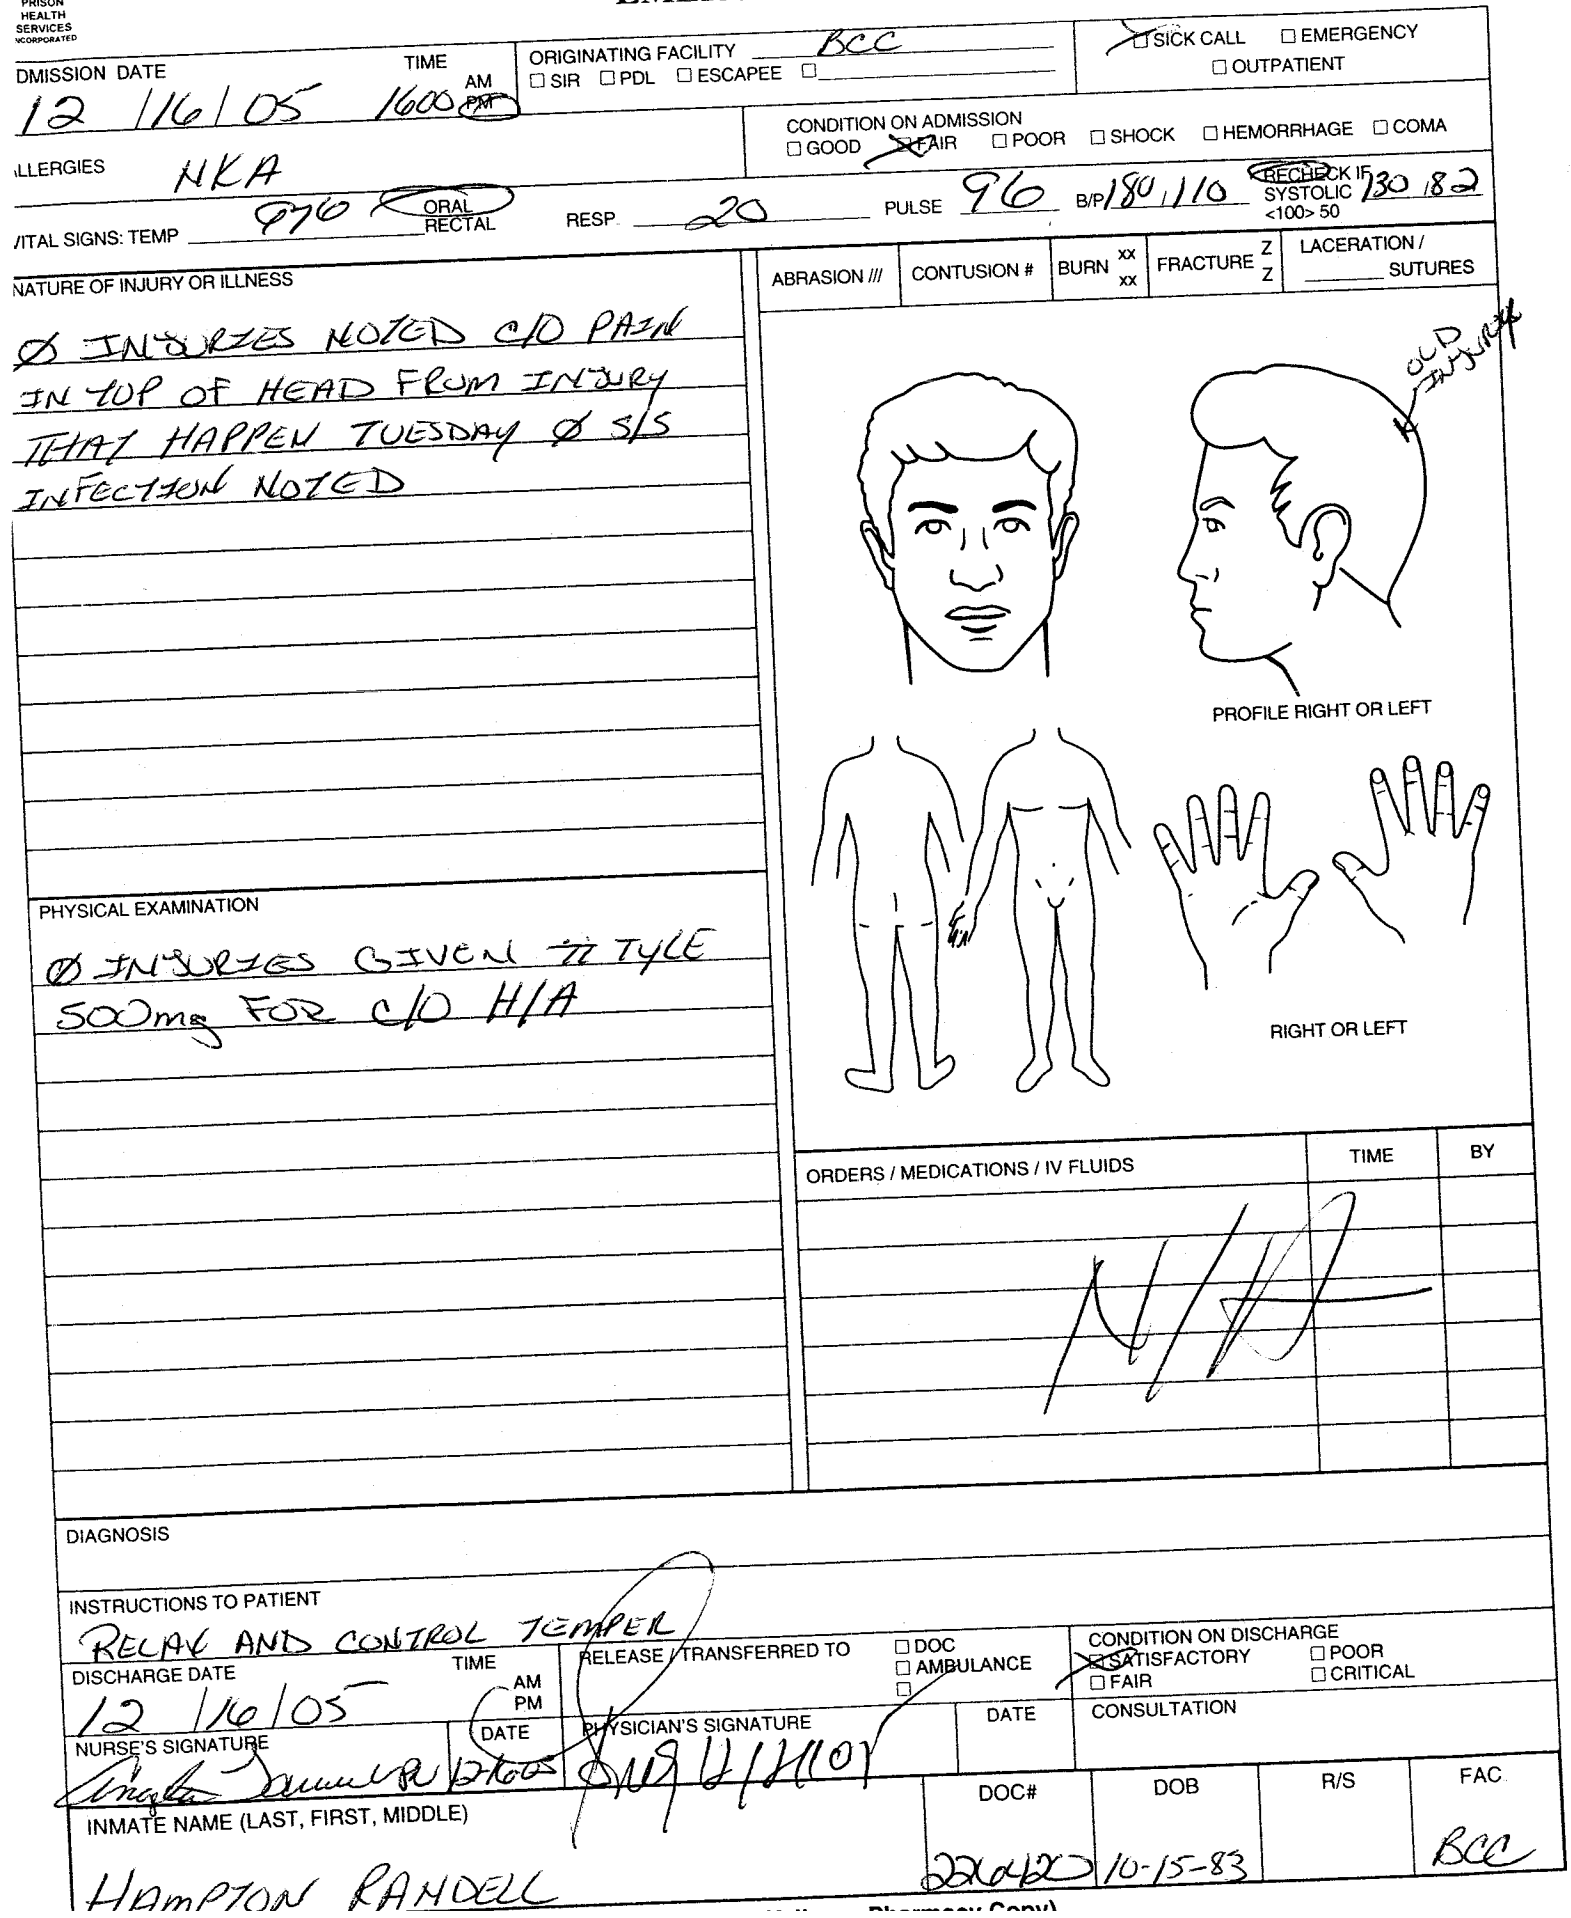 PRISON
HEALTH
SERVICES
NCORPORATED
DMISSION DATE TIME AM PM
12 /16/05 1600
ORIGINATING FACILITY BCC
□ SIR □ PDL □ ESCAPEE □
□ SICK CALL □ EMERGENCY
□ OUTPATIENT
LLERGIES NKA
CONDITION ON ADMISSION
□ GOOD □ FAIR □ POOR □ SHOCK □ HEMORRHAGE □ COMA
VITAL SIGNS: TEMP 976 ORAL RECTAL RESP. 20 PULSE 96 B/P 180/110 RECHECK IF SYSTOLIC <100> 50 130 / 82
NATURE OF INJURY OR ILLNESS
Ø INJURIES NOTED C/O PAIN
IN TOP OF HEAD FROM INJURY
THAT HAPPEN TUESDAY Ø S/S
INFECTION NOTED
ABRASION /// CONTUSION # BURN xx xx FRACTURE Z Z LACERATION / SUTURES
OLD
INJURY
PROFILE RIGHT OR LEFT
RIGHT OR LEFT
PHYSICAL EXAMINATION
Ø INJURIES GIVEN II TYLE
500mg FOR C/O H/A
ORDERS / MEDICATIONS / IV FLUIDS TIME BY
N/A
DIAGNOSIS
INSTRUCTIONS TO PATIENT
RELAX AND CONTROL TEMPER
DISCHARGE DATE TIME AM PM
12 /16/05
RELEASE / TRANSFERRED TO □ DOC
□ AMBULANCE
□
CONDITION ON DISCHARGE
□ SATISFACTORY □ POOR
□ FAIR □ CRITICAL
NURSE'S SIGNATURE DATE PHYSICIAN'S SIGNATURE DATE CONSULTATION
12-16-05
INMATE NAME (LAST, FIRST, MIDDLE) DOC# DOB R/S FAC.
HAMPTON RANDELL 10-15-83 BCC
Pharmacy Copy)